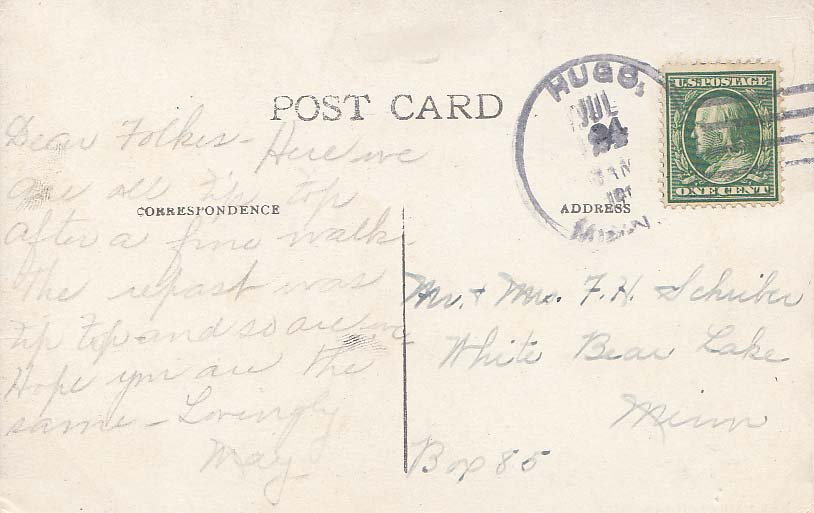 POST CARD
CORRESPONDENCE
Dear Folkes - Here we
are all tip top
after a fine walk.
The repast was
tip top - and so are we
Hope you are the
same - Lovingly
May
HUGO,
JUL
24
MINN
U.S. POSTAGE
ONE CENT
ADDRESS
Mr. + Mrs. F. H. Schriber
White Bear Lake
Minn
Box 85